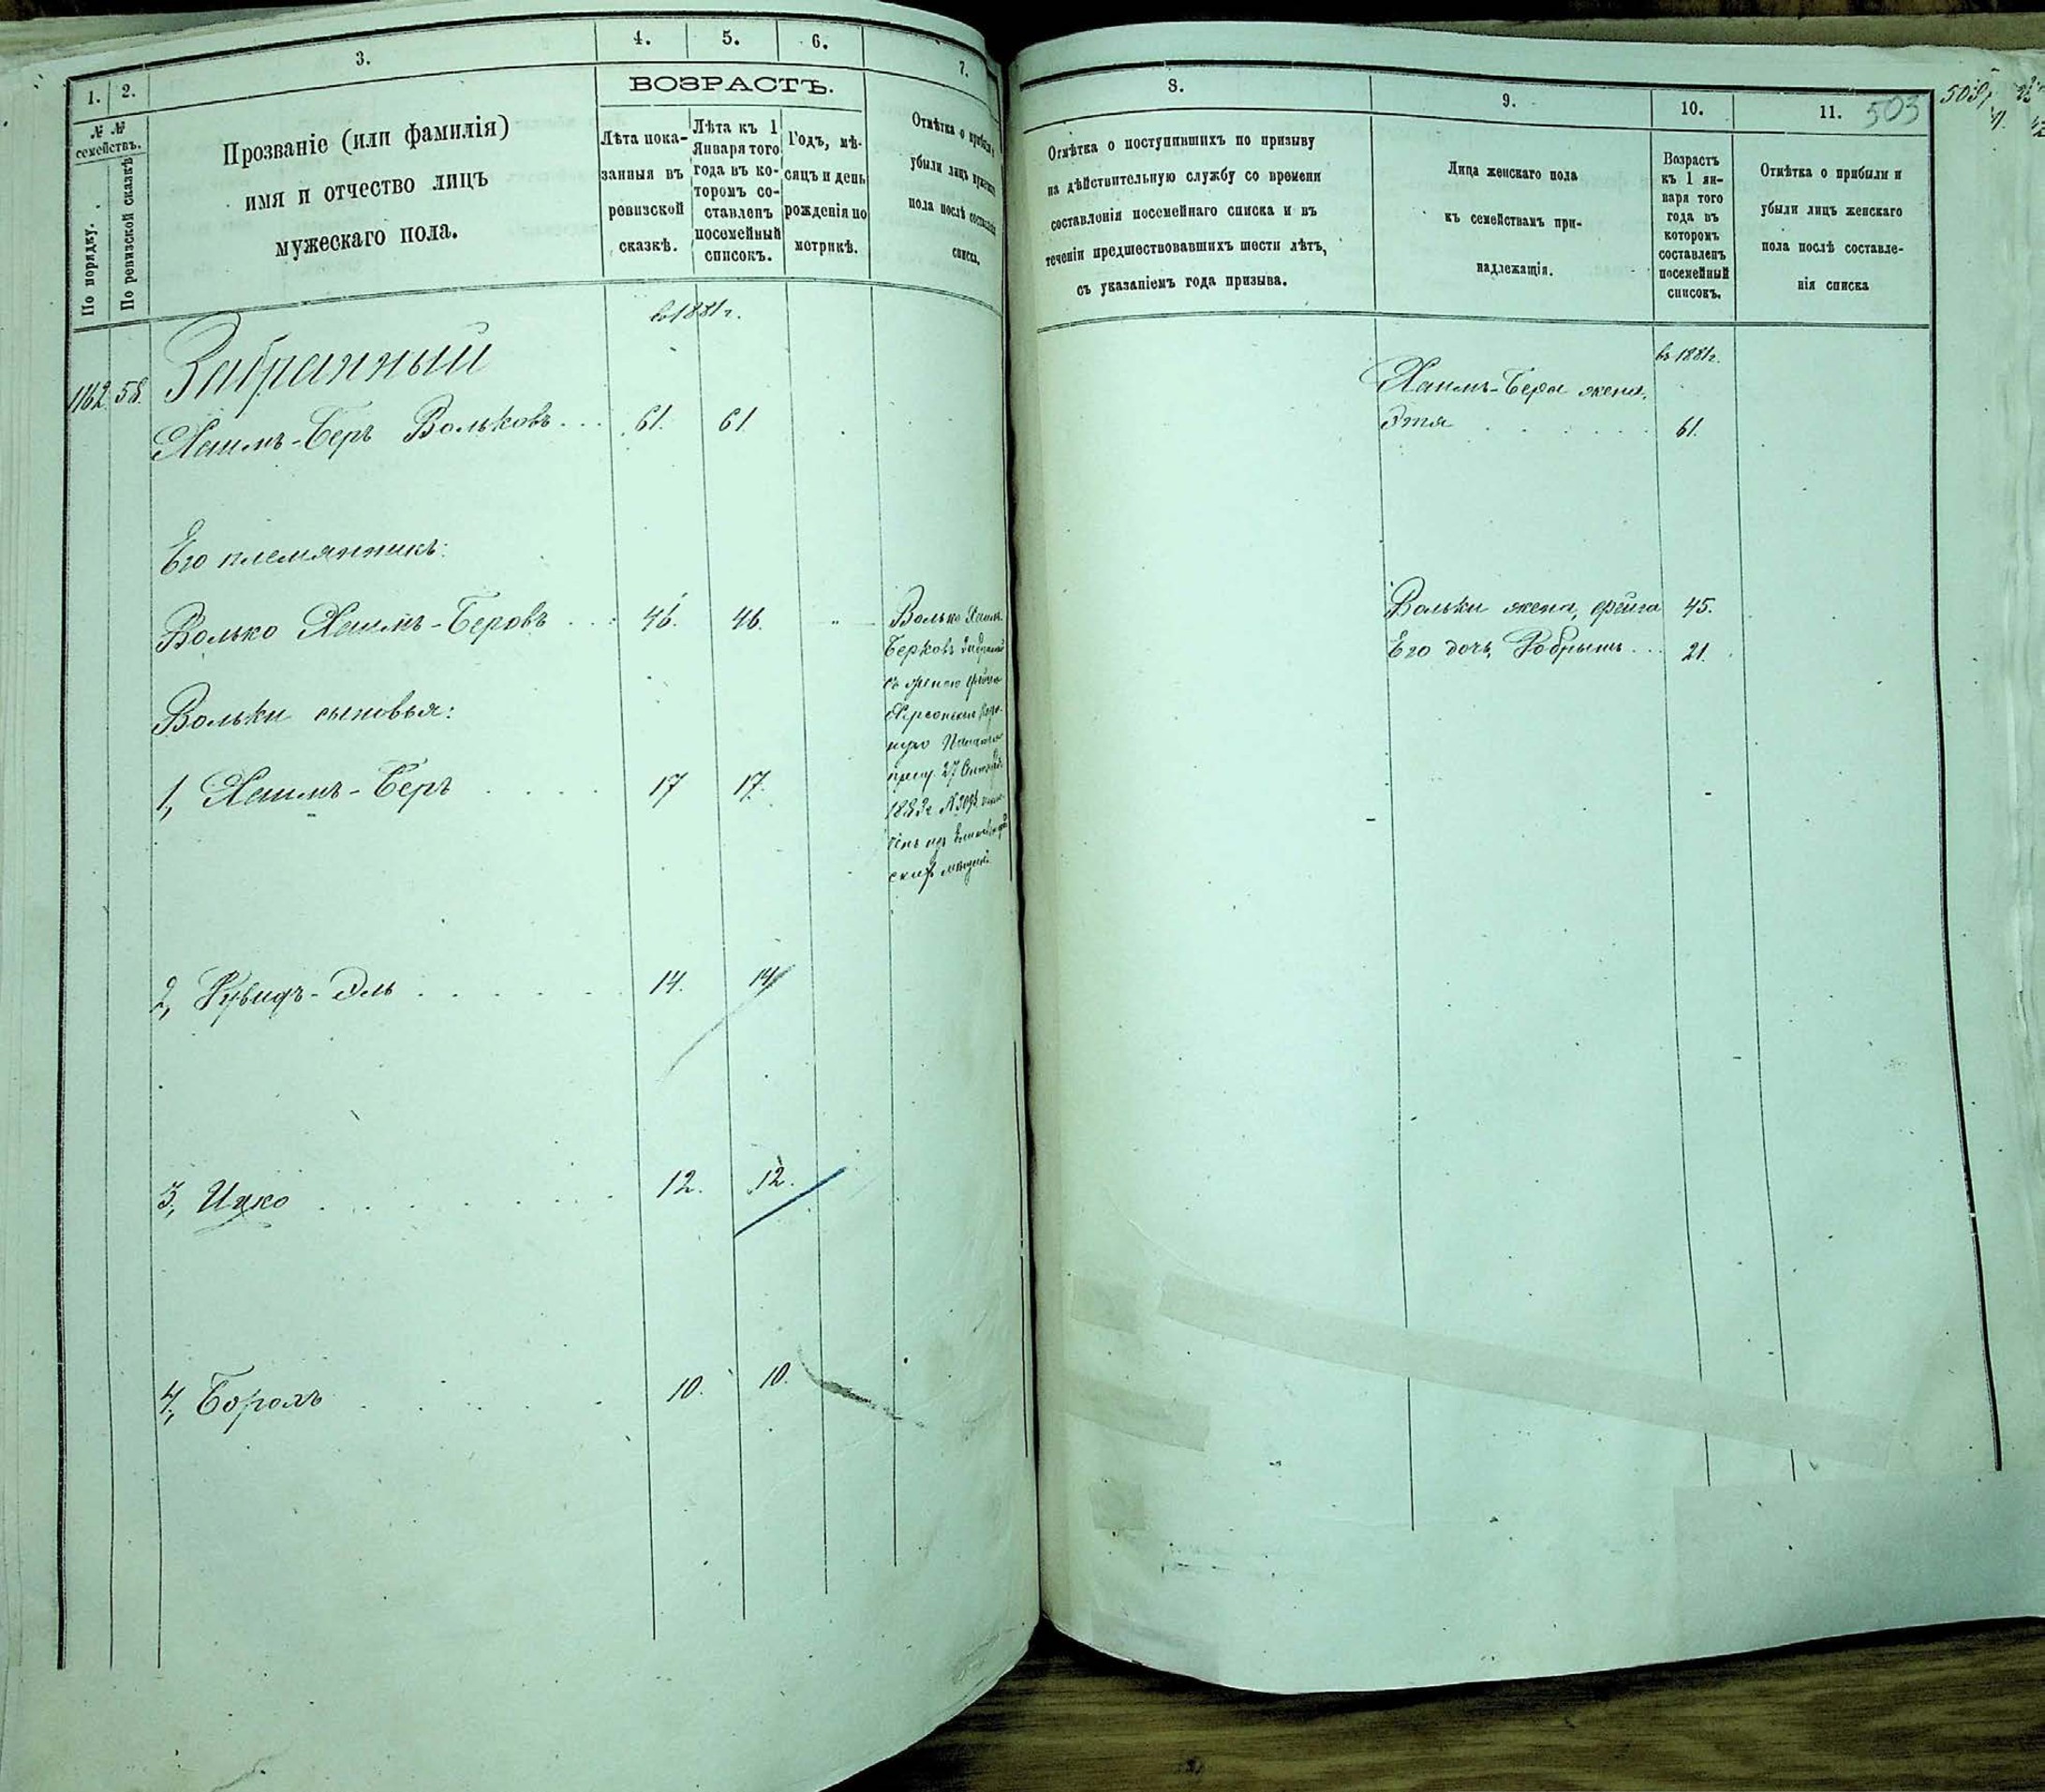 1.
2.
3.
4.
5.
6.
7.
ВОЗРАСТЪ.
№ №
семействъ.
По порядку.
По ревизской сказкѣ
Прозваніе (или фамилія)
имя и отчество лицъ
мужескаго пола.
Лѣта пока-
занныя въ
ревизской
сказкѣ.
Лѣта къ 1
Января того
года въ ко-
торомъ со-
ставленъ
посемейный
списокъ.
Годъ, мѣ-
сяцъ и день
рожденія по
метрикѣ.
Отмѣтка о прибыли и
убыли лицъ мужскаго
пола послѣ составленія
списка.
въ 1881 г.
1162 58. Забранный
Хаимъ-Беръ Вольковъ . . . 61. 61
Его племянникъ:
Волько Хаимъ-Беровъ . . . 46. 46. "
Волько Хаимъ
Берковъ Забранный
съ женою
27
1883 г №
Вольки сыновья:
1, Хаимъ-Беръ . . . . 17 17.
2, Рувидъ-Эль . . . . . . 14. 14
3, Ицко . . . . . . . 12. 12.
4, Борохъ . . . . . 10. 10.
8.
9.
10.
11.
503
Отмѣтка о поступившихъ по призыву
на дѣйствительную службу со времени
составленія посемейнаго списка и въ
теченіи предшествовавшихъ шести лѣтъ,
съ указаніемъ года призыва.
Лица женскаго пола
къ семействамъ при-
надлежащія.
Возрастъ
къ 1 ян-
варя того
года въ
которомъ
составленъ
посемейный
списокъ.
Отмѣтка о прибыли и
убыли лицъ женскаго
пола послѣ составле-
нія списка
въ 1881 г.
Хаимъ-Бера жена,
Этя . . . . . . 61.
Вольки жена, Фейга 45.
Его дочь, . . . 21.